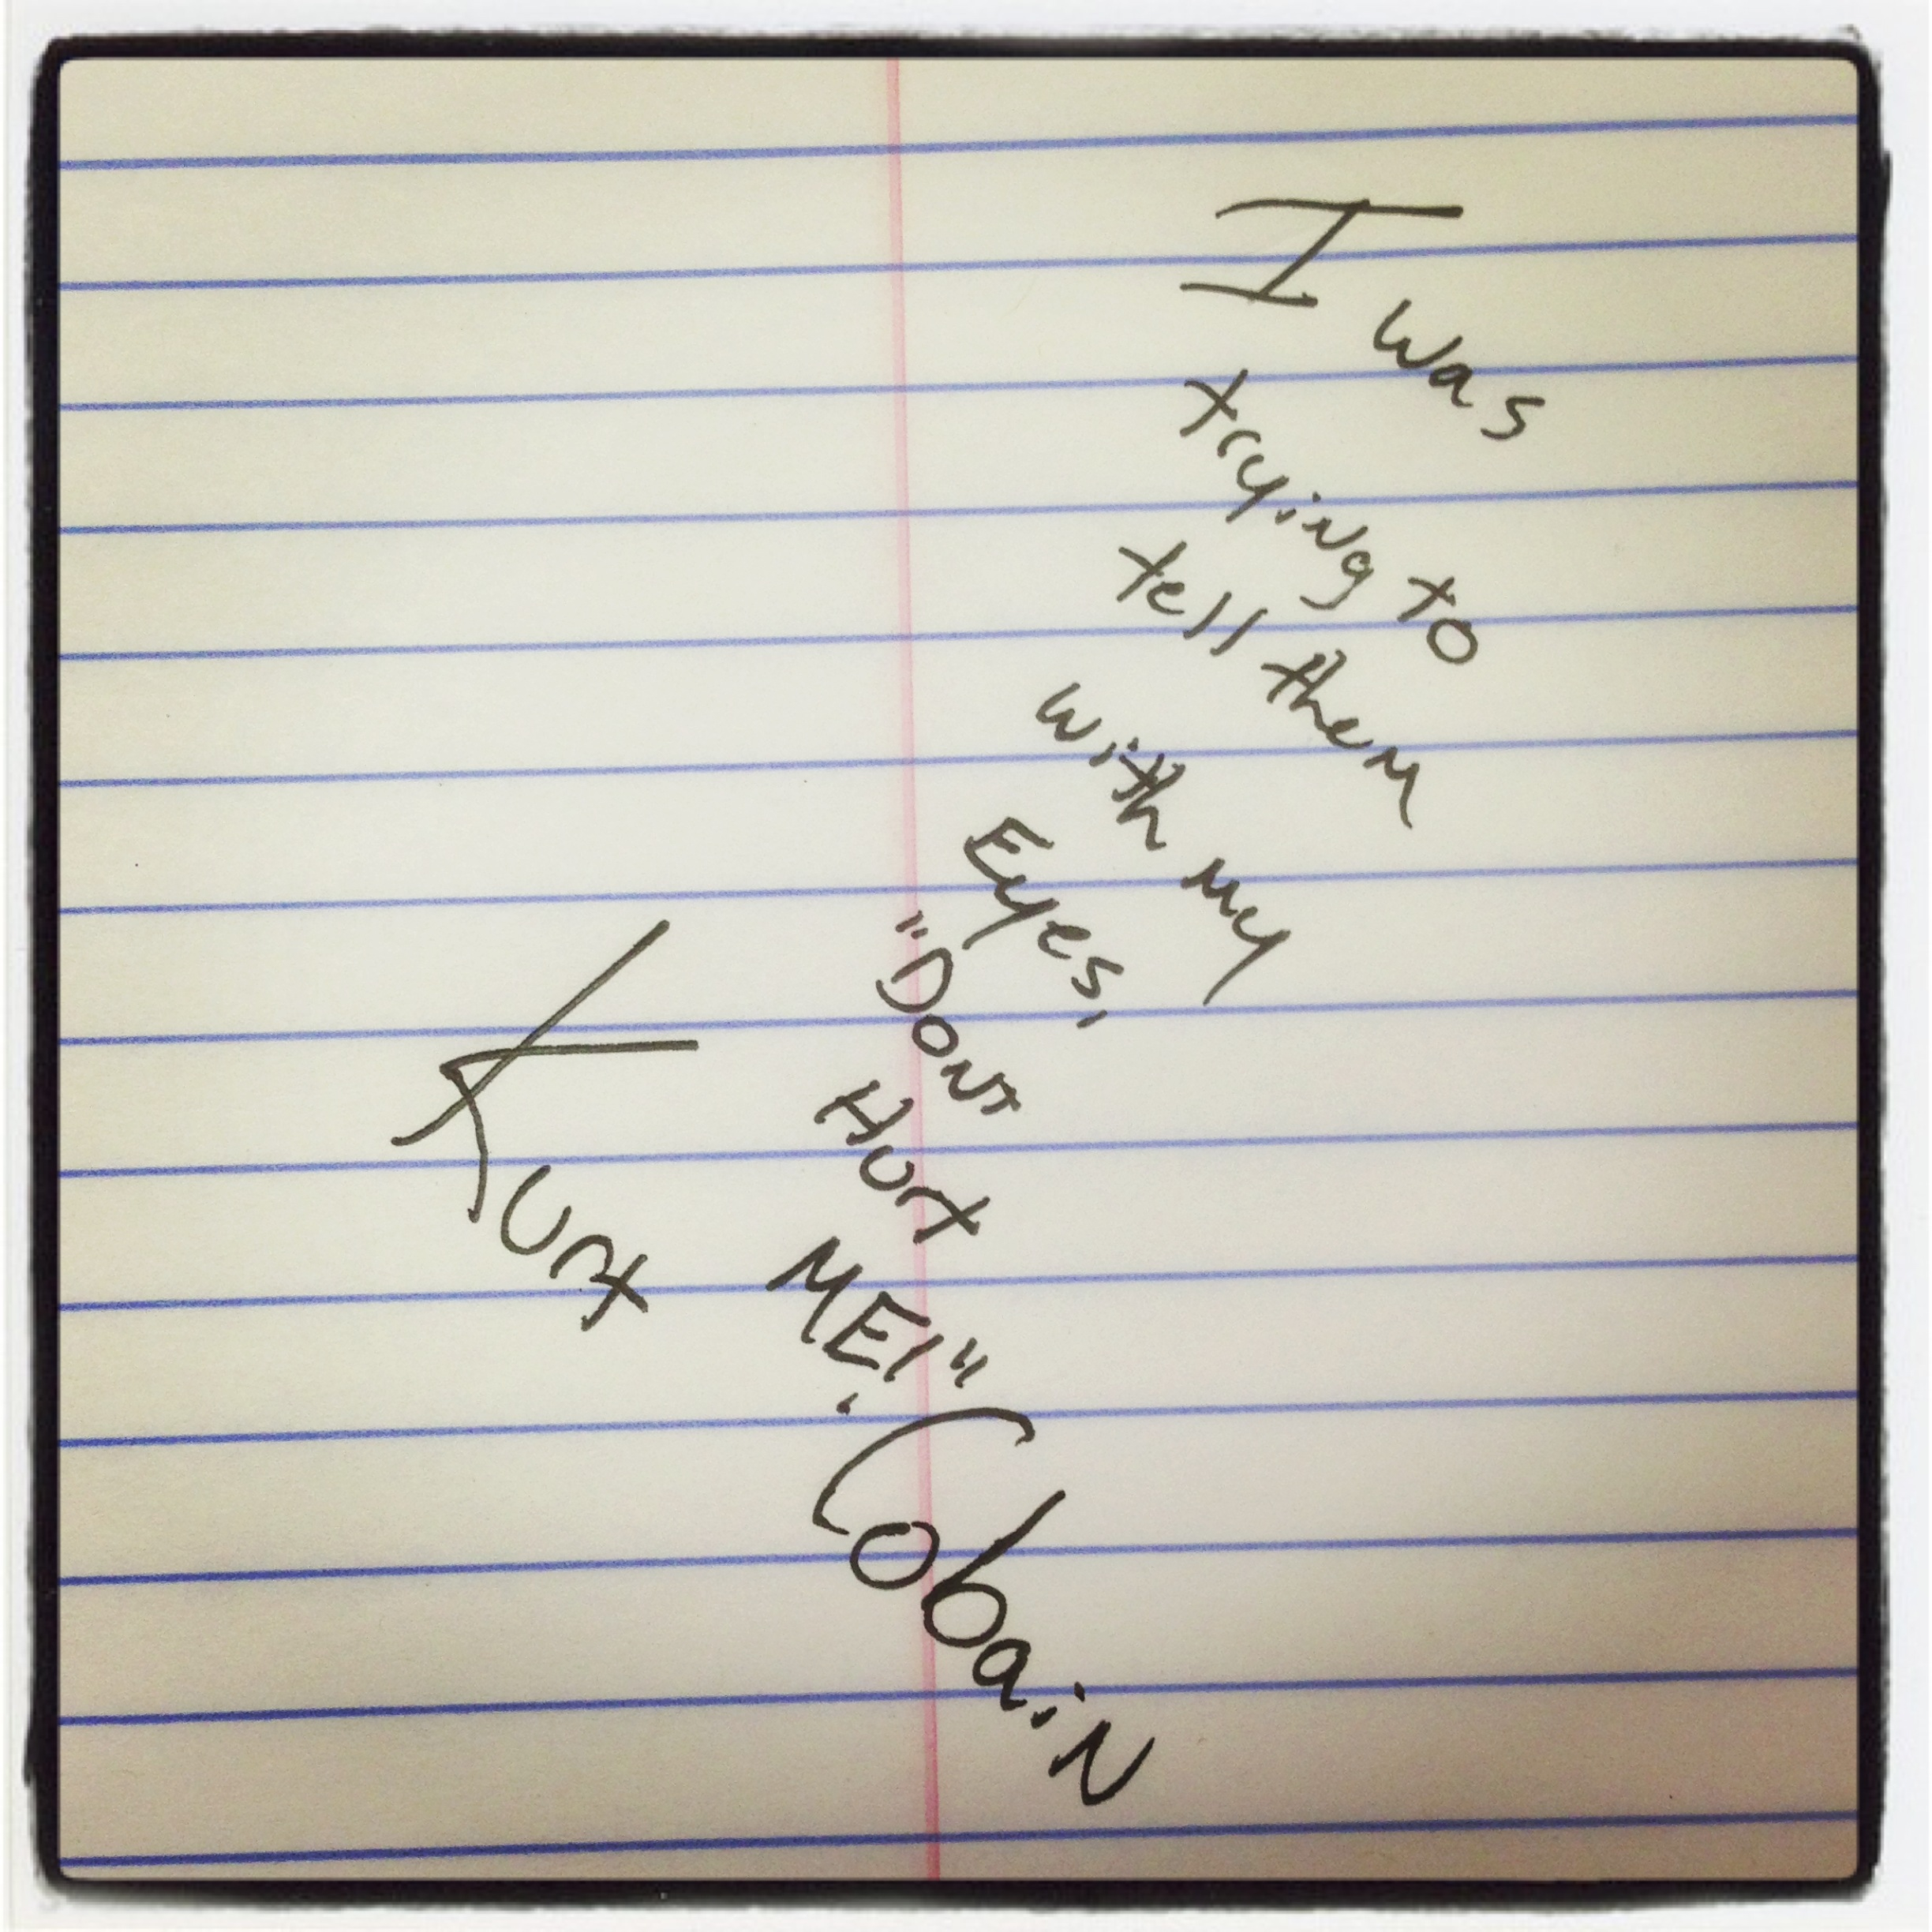 I was
trying to
tell them
with my
Eyes,
"Dont
Hurt
ME!"
Kurt
Cobain